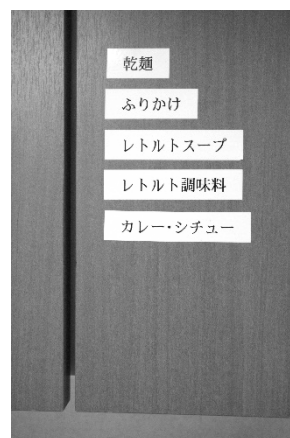 乾麺
ふりかけ
レトルトスープ
レトルト調味料
カレー・シチュー